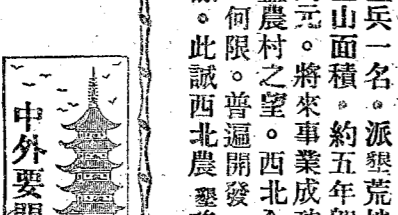 兵一名。派墾荒地
山面積。約五年
元。將來事業成
農村之望。西北
何限。普遍開發
。此誠西北農墾
中外要聞